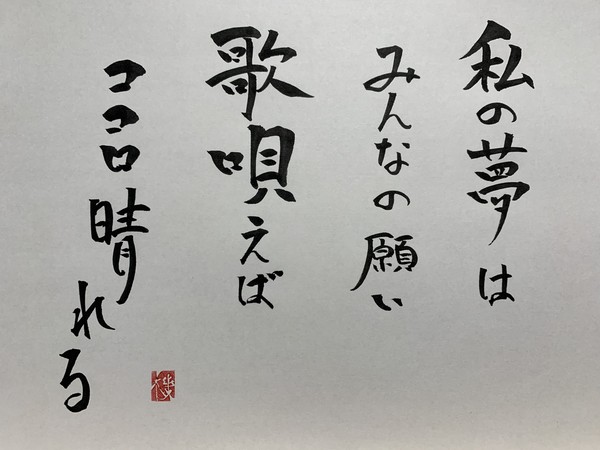 私の夢は
みんなの願い
歌唄えば
ココロ晴れる